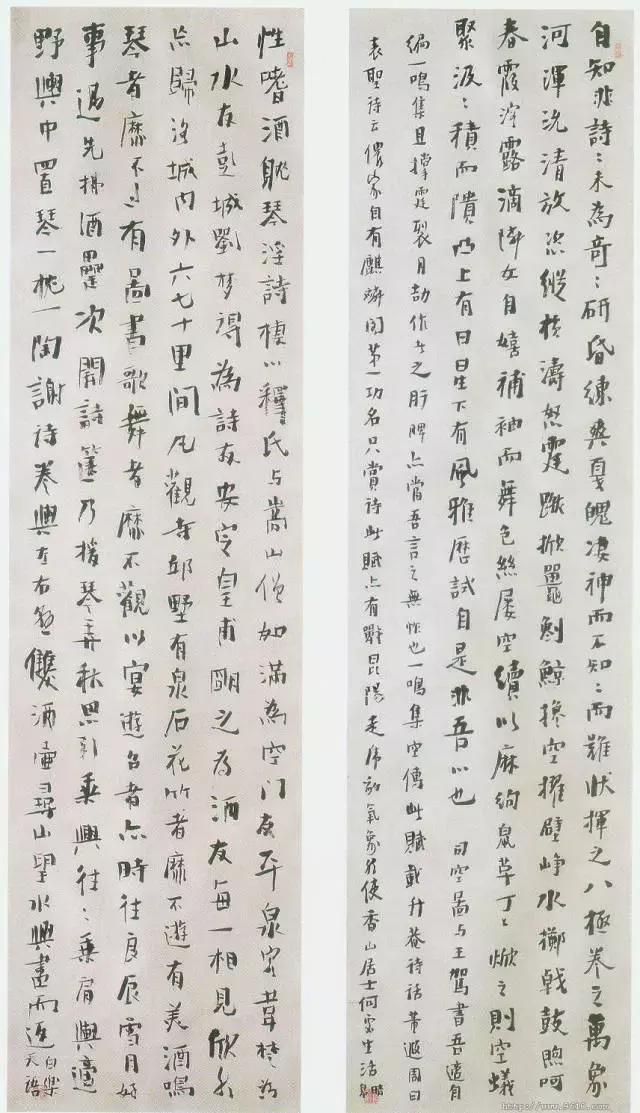 自知非詩〻未為奇〻研昏練爽戛魄淒神而不知〻而難狀揮之八極卷之萬象
河渾沇清放恣縱橫濤怒霆蹴掀鼇倒鯨攙空擢壁崢水擲戟鼓煦呵
春霞溶露滴隣女自嬉補袖而舞色絲屢空續以麻絇鼠草丁〻焮之則空蟻
聚汲〻積而隤凸上有日星下有風雅歷試自是非吾心也 司空圖与王駕書吾適自
編一鳴集且撐霆裂月劫作者之肝脾亦當吾言之無怍也一鳴集空傳此賦載升菴詩話黃遐周曰
表聖詩云儂家自有麒麟閣第一功名只賞詩此賦亦有戰昆陽走虎豹氣象能使香山居士何處生活
性嗜酒耽琴淫詩棲心釋氏与嵩山僧如滿為空門友平泉客韋楚為
山水友彭城劉梦得為詩友安定皇甫朗之為酒友每一相見欣然
忘歸洛城內外六七十里間凡觀寺邱墅有泉石花竹者靡不遊有美酒鳴
琴者靡不過有圖書歌舞者靡不觀以宴遊召者亦時往良辰雪月好
事過先拂酒罍次開詩篋乃援琴弄秋思乘興往〻乘肩輿適
野輿中置琴一枕一陶謝詩卷輿左右懸雙酒壺尋山望水興盡而返
白樂天語
http://www.9610.com